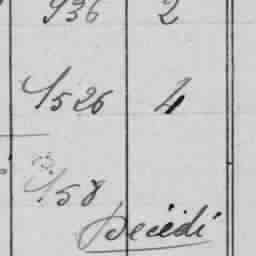 936 2
1526 4
158
Décédé